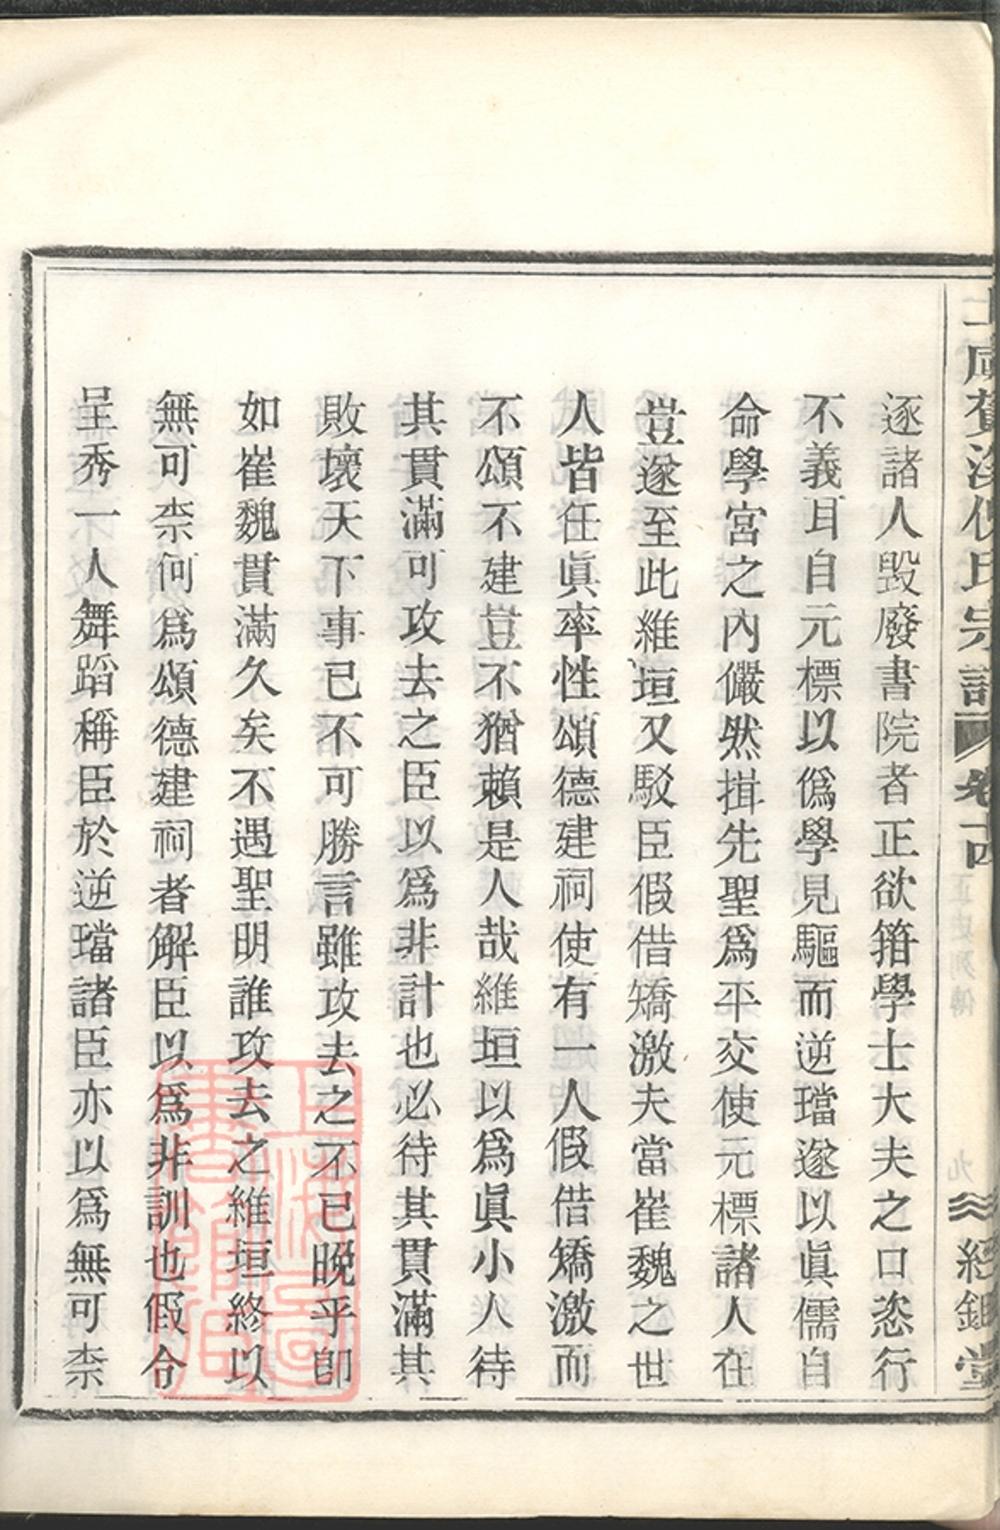 上虞賀溪倪氏宗譜 卷十四 正史列傳 九 經鉏堂
逐諸人毀廢書院者正欲箝學士大夫之口恣行
不義耳自元標以僞學見驅而逆璫遂以眞儒自
命學宮之內儼然揖先聖爲平交使元標諸人在
豈遂至此維垣又駁臣假借矯激夫當崔魏之世
人皆任眞率性頌德建祠使有一人假借矯激而
不頌不建豈不猶賴是人哉維垣以爲眞小人待
其貫滿可攻去之臣以爲非計也必待其貫滿其
敗壞天下事已不可勝言雖攻去之不已晚乎卽
如崔魏貫滿久矣不遇聖明誰攻去之維垣終以
無可柰何爲頌德建祠者解臣以爲非訓也假令
呈秀一人舞蹈稱臣於逆璫諸臣亦以爲無可柰
上海圖書館藏